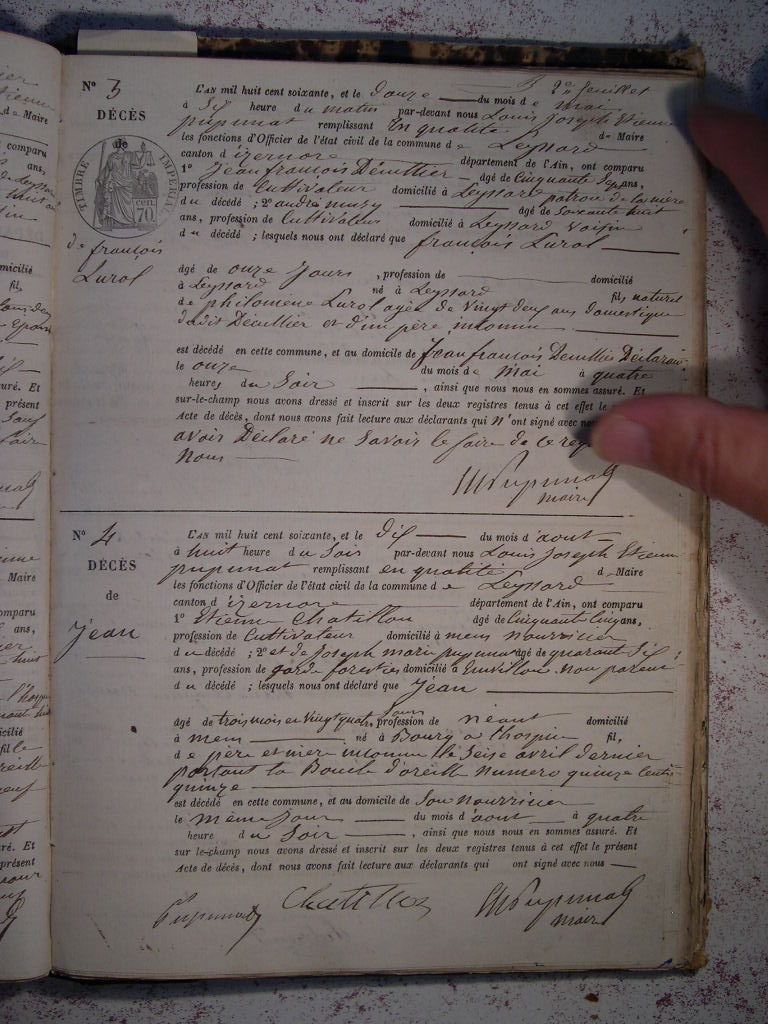 2e feuillet
N° 3
DÉCÈS
de
TIMBRE IMPÉRIAL
70 cen.
de françois
Lurol
L'AN mil huit cent soixante, et le douze du mois de mai
à six heure du matin par-devant nous Louis Joseph Etienne
pupunat remplissant en qualité de Maire
les fonctions d'Officier de l'état civil de la commune de Leyssard
canton d'izernore département de l'Ain, ont comparu
1° Jean françois Décullier âgé de Cinquante Sept ans,
profession de Cultivateur domicilié à Leyssard patron de la mère
du décédé ; 2° andré muzy âgé de soixante huit
ans, profession de Cultivateur domicilié à Leyssard Voisin
du décédé ; lesquels nous ont déclaré que françois Lurol
âgé de onze Jours , profession de domicilié
à Leyssard né à Leyssard fils naturel
de philomène Lurol agée de Vingt deux ans domestique
dudit Décullier et d'un père inconnu
est décédé en cette commune, et au domicile de Jean françois Décullier Déclarant
le onze du mois de Mai à quatre
heures du Soir , ainsi que nous nous en sommes assuré. Et
sur-le-champ nous avons dressé et inscrit sur les deux registres tenus à cet effet le
Acte de décès, dont nous avons fait lecture aux déclarants qui n'ont signé avec nous
avoir Déclaré ne Savoir le faire de ce
Nous
Pupunat
maire
N° 4
DÉCÈS
de
Jean
L'AN mil huit cent soixante, et le dix du mois d'aout
à huit heure du Soir par-devant nous Louis Joseph Etienne
pupunat remplissant en qualité de Maire
les fonctions d'Officier de l'état civil de la commune de Leyssard
canton d'izernore département de l'Ain, ont comparu
1° Etienne Chatillon âgé de Cinquante Cinq ans,
profession de Cultivateur domicilié à mens nourricier
du décédé ; 2° et de Joseph marie pupunat âgé de quarante Six
ans, profession de garde forestier domicilié à Non parent
du décédé ; lesquels nous ont déclaré que Jean
âgé de trois mois et Vingt quatre Jours, profession de néant domicilié
à mens né à Bourg a l'hospice fil,
de père et mère inconnu le Seise avril dernier
portant la Boucle d'oreille numero quinze Cents
quinze
est décédé en cette commune, et au domicile de Son nourricier
le même Jour du mois d'aout à quatre
heure du Soir , ainsi que nous nous en sommes assuré. Et
sur le-champ nous avons dressé et inscrit sur les deux registres tenus à cet effet le présent
Acte de décès, dont nous avons fait lecture aux déclarants qui ont signé avec nous
Pupunat Chatillon Pupunat
maire